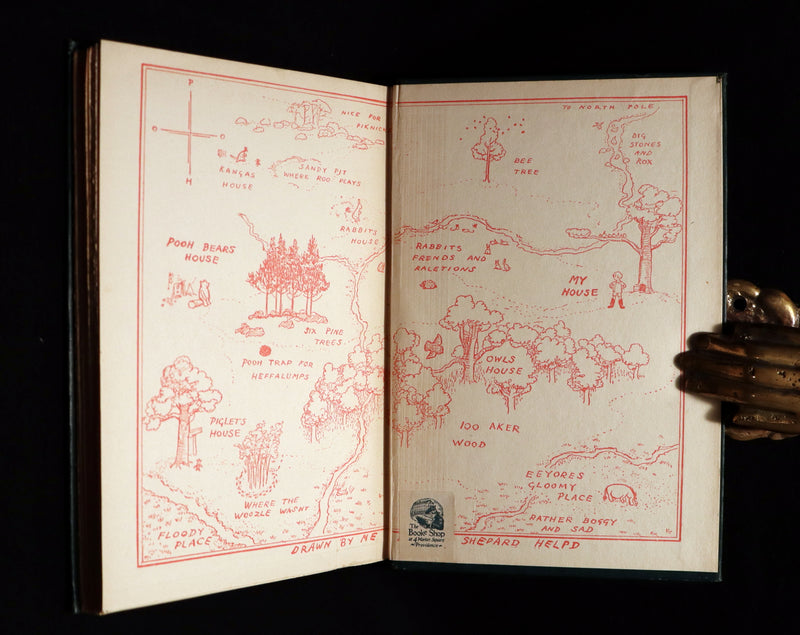 P
O
O
H
NICE FOR
PIKNICK
KANGAS
HOUSE
SANDY PIT
WHERE ROO PLAYS
RABBITS
HOUSE
POOH BEARS
HOUSE
SIX PINE
TREES
POOH TRAP FOR
HEFFALUMPS
PIGLETS
HOUSE
WHERE THE
WOOZLE WASNT
FLOODY
PLACE
DRAWN BY ME
TO NORTH POLE
BIG
STONES
AND
ROX
BEE
TREE
RABBITS
FRENDS AND
RALETIONS
MY
HOUSE
OWLS
HOUSE
100 AKER
WOOD
EEYORES
GLOOMY
PLACE
RATHER BOGGY
AND SAD
SHEPARD HELPD
The
Book Shop
at 4 Market Square
Providence